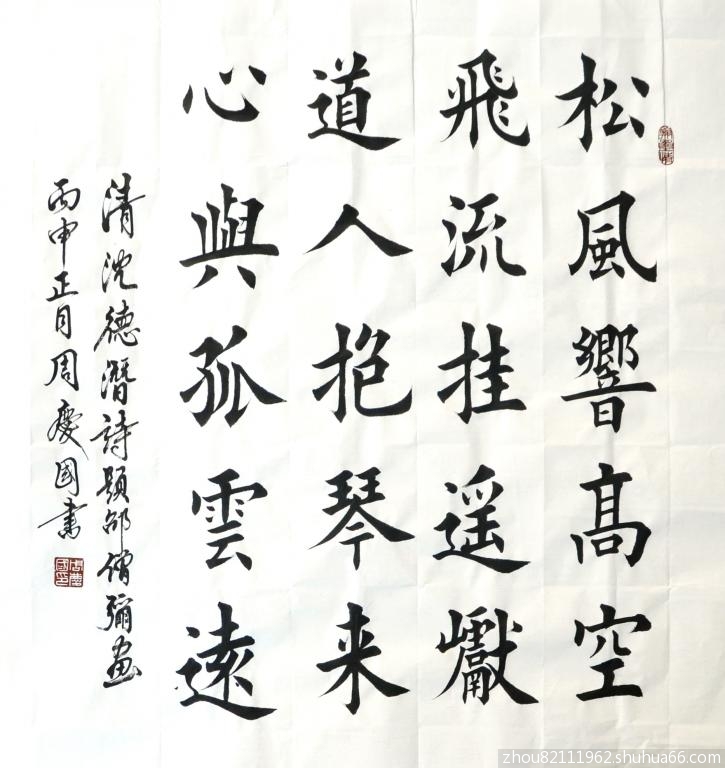 松風響高空
飛流挂遥巘
道人抱琴来
心與孤雲遠
清沈德潛詩題邵僧彌畫
丙申正月周慶國書
周慶國印
zhou82111962.shuhua66.com